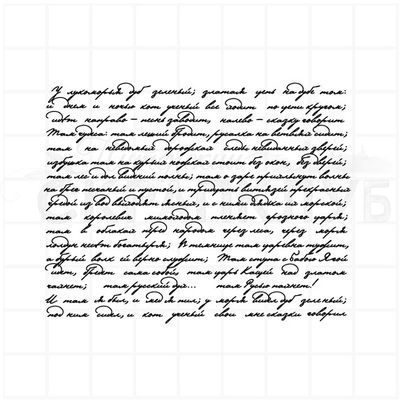 У лукоморья дуб зеленый; златая цепь на дубе том:
и днем и ночью кот ученый все ходит по цепи кругом;
идет направо - песнь заводит, налево - сказку говорит.
Там чудеса: там леший бродит, русалка на ветвях сидит;
там на неведомых дорожках следы невиданных зверей;
избушка там на курьих ножках стоит без окон, без дверей;
там лес и дол видений полны; там о заре прихлынут волны
на брег песчаный и пустой, и тридцать витязей прекрасных
чредой из вод выходят ясных, и с ними дядька их морской;
там королевич мимоходом пленяет грозного царя;
там в облаках перед народом через леса, через моря
колдун несет богатыря; В темнице там царевна тужит,
а бурый волк ей верно служит; Там ступа с Бабою Ягой
идет, бредет сама собой; там царь Кащей над златом
чахнет; там русский дух... там Русью пахнет!
И там я был, и мед я пил; у моря видел дуб зеленый;
под ним сидел, и кот ученый свои мне сказки говорил